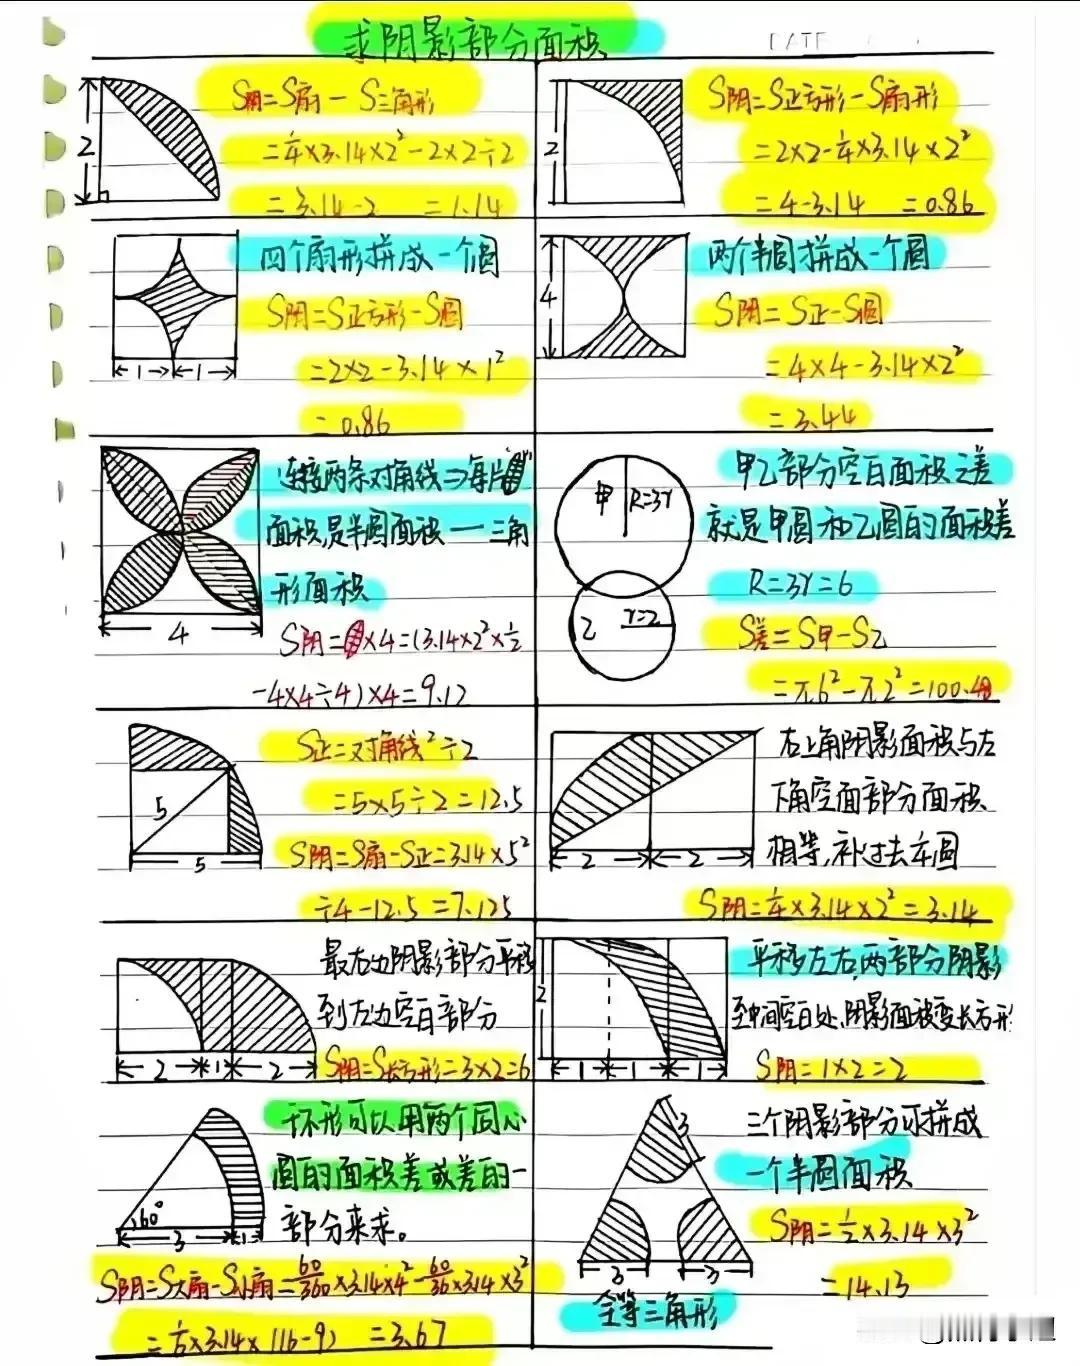 求阴影部分面积
DATE
2
S阴=S扇-S三角形
=¼×3.14×2²-2×2÷2
=3.14-2 =1.14
2
S阴=S正方形-S扇形
=2×2-¼×3.14×2²
=4-3.14 =0.86
1 1
四个扇形拼成一个圆
S阴=S正方形-S圆
=2×2-3.14×1²
=0.86
4
两个半圆拼成一个圆
S阴=S正-S圆
=4×4-3.14×2²
=3.44
4
连接两条对角线⇒每片""
面积,是半圆面积一三角
形面积
S阴=×4=(3.14×2²×½
-4×4÷4)×4=9.12
甲 R=3r
乙 r=2
甲乙部分空白面积之差
就是甲圆和乙圆的面积差
R=3r=6
S差=S甲-S乙
=π6²-π2²=100.48
5
5
S正=对角线²÷2
=5×5÷2=12.5
S阴=S扇-S正=3.14×5²
÷4-12.5=7.125
2 2
右上角阴影面积与左
下角空面部分面积
相等,补过去车圆
S阴=¼×3.14×2²=3.14
2 1 2
最右边阴影部分平移
到左边空白部分
S阴=S长方形=3×2=6
2
1 1 1
平移左右,两部分阴影
至中间空白处,阴影面被变长方形
S阴=1×2=2
60°
3 1
环形可以用两个同心
圆的面积差或差的一
部分来求。
S阴=S大扇-S小扇=60/360×3.14×4²-60/36×3.14×3²
=⅙×3.14×(16-9) =3.67
3
3 3
全等三角形
三个阴影部分可拼成
一个半圆面积
S阴=½×3.14×3²
=14.13